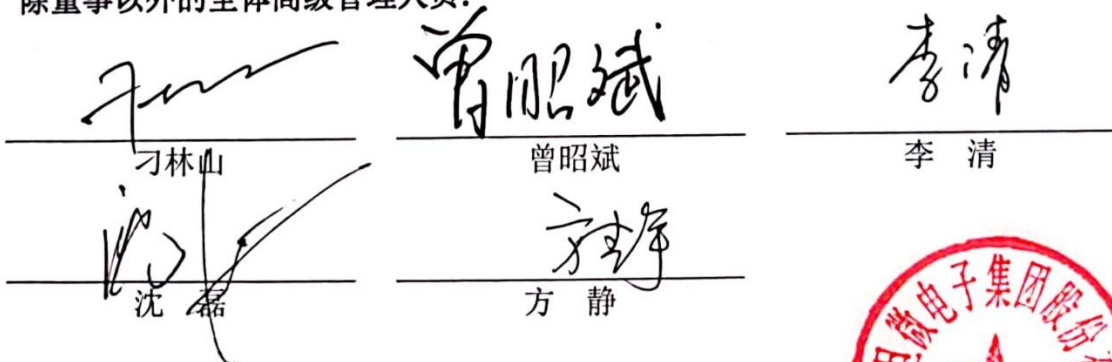 除董事以外的全体高级管理人员：
曾昭斌 李清
刁林山 曾昭斌 李 清
方静
沈 磊 方 静
微电子集团股份